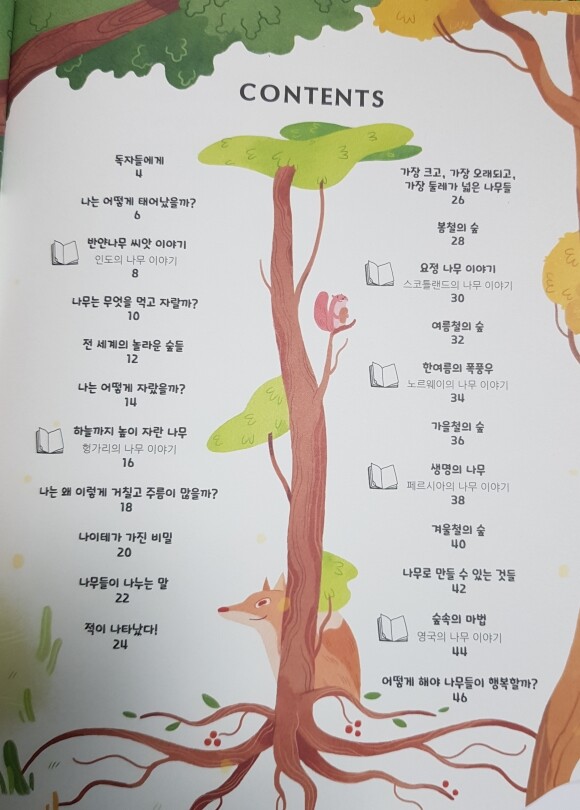 CONTENTS
독자들에게
4
나는 어떻게 태어났을까?
6
반얀나무 씨앗 이야기
인도의 나무 이야기
8
나무는 무엇을 먹고 자랄까?
10
전 세계의 놀라운 숲들
12
나는 어떻게 자랐을까?
14
하늘까지 높이 자란 나무
헝가리의 나무 이야기
16
나는 왜 이렇게 거칠고 주름이 많을까?
18
나이테가 가진 비밀
20
나무들이 나누는 말
22
적이 나타났다!
24
가장 크고, 가장 오래되고,
가장 둘레가 넓은 나무들
26
봄철의 숲
28
요정 나무 이야기
스코틀랜드의 나무 이야기
30
여름철의 숲
32
한여름의 폭풍우
노르웨이의 나무 이야기
34
가을철의 숲
36
생명의 나무
페르시아의 나무 이야기
38
겨울철의 숲
40
나무로 만들 수 있는 것들
42
숲속의 마법
영국의 나무 이야기
44
어떻게 해야 나무들이 행복할까?
46